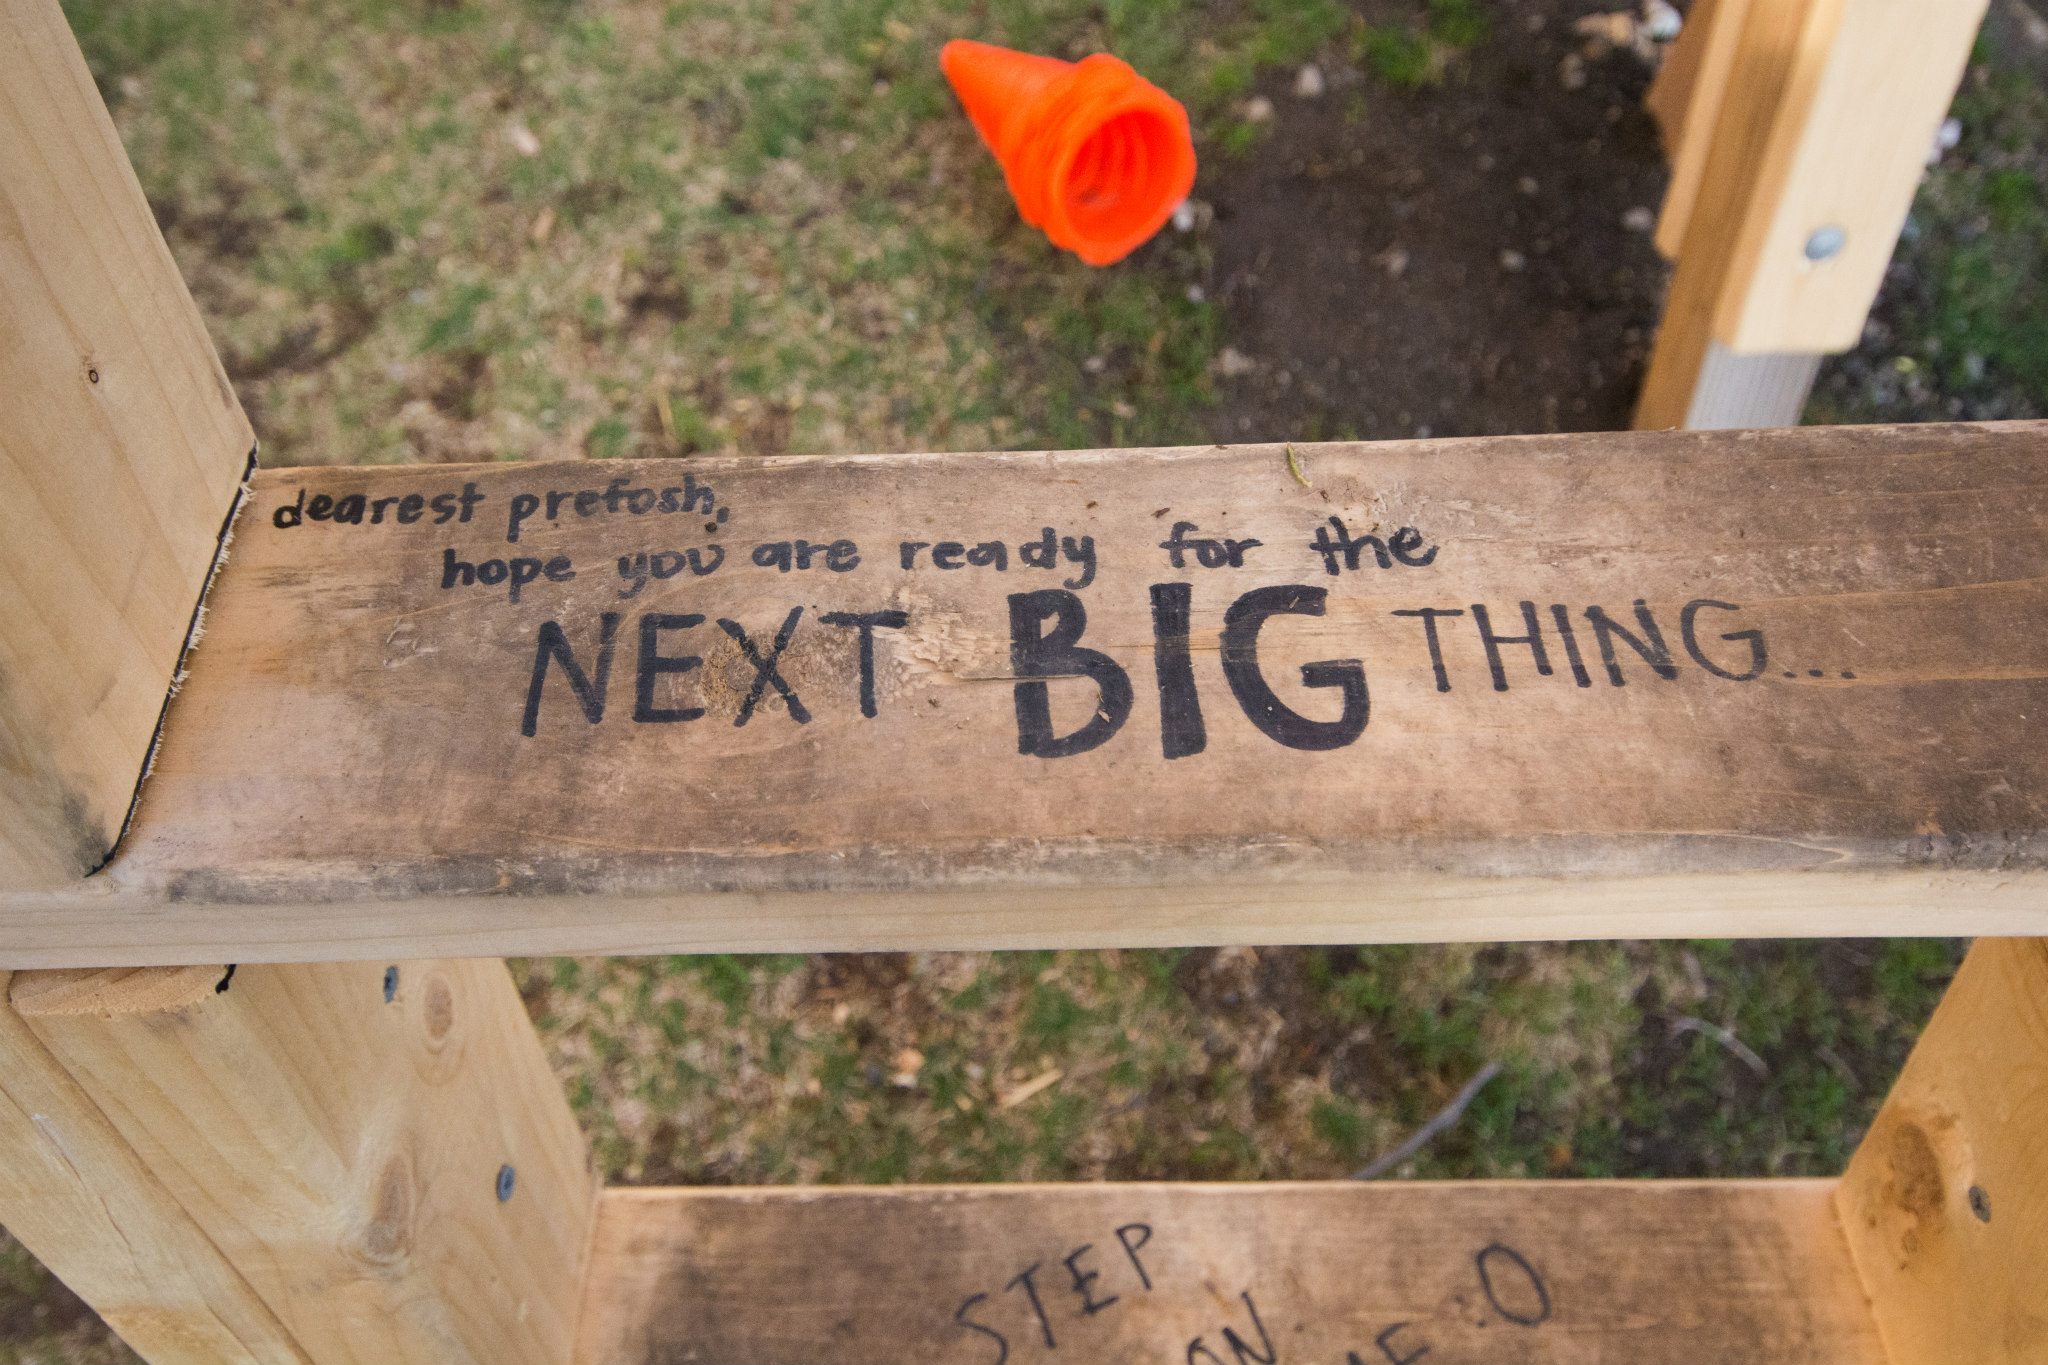 dearest prefosh,
hope you are ready for the
NEXT BIG THING...
STEP
ON
ME :O